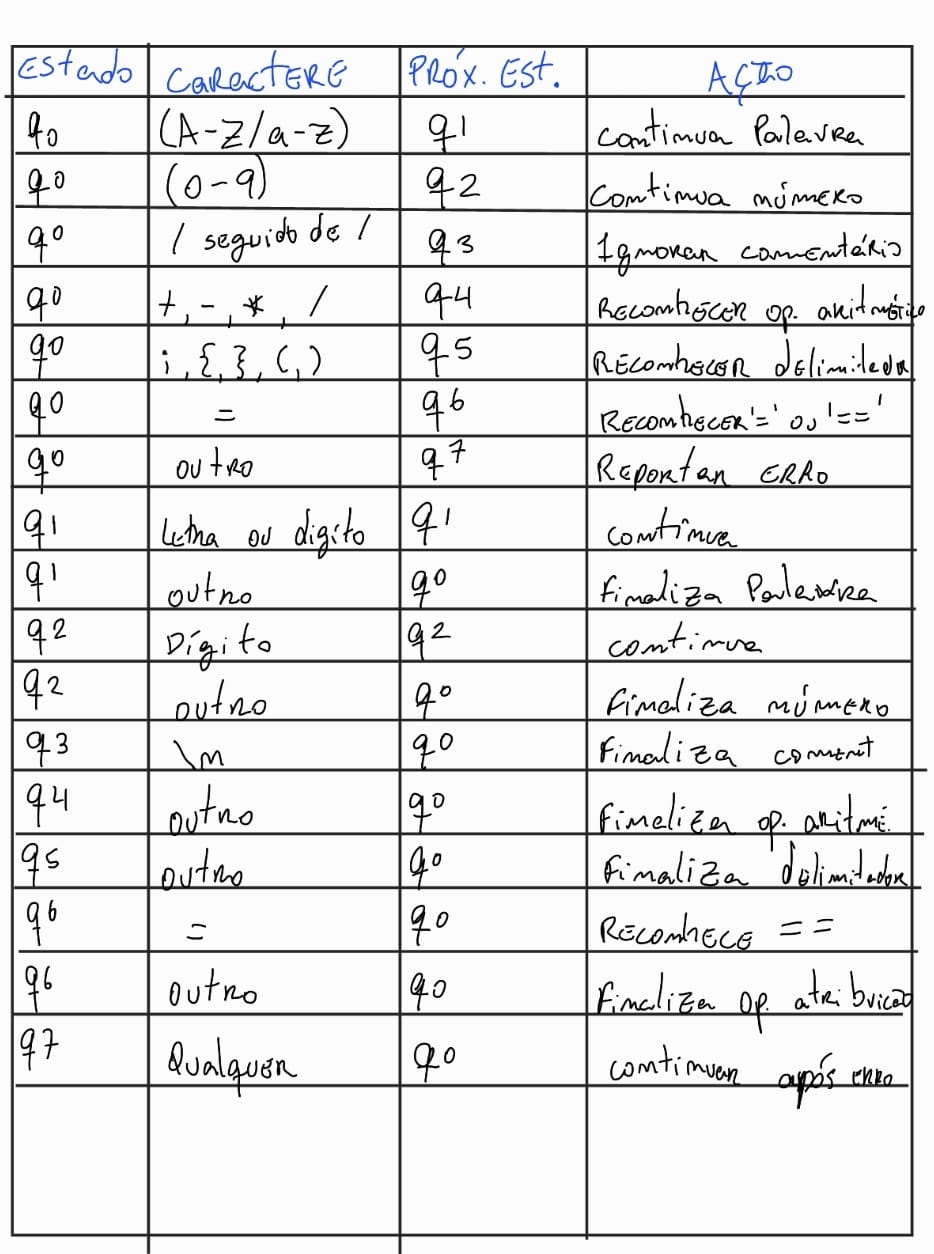 Estado CARACTERE PRÓX. EST. AÇÃO
q0 (A-Z/a-z) q1 continua Palavra
q0 (0-9) q2 continua número
q0 / seguido de / q3 Ignorar comentário
q0 +, -, *, / q4 Reconhecer op. aritmético
q0 ;, {, }, (, ) q5 Reconhecer delimitador
q0 = q6 Reconhecer '=' ou '=='
q0 outro q7 Reportar ERRO
q1 Letra ou digito q1 continua
q1 outro q0 finaliza Palavra
q2 Dígito q2 continua
q2 outro q0 finaliza número
q3 \n q0 finaliza coment
q4 outro q0 finaliza op. aritmé.
q5 outro q0 finaliza delimitador
q6 = q0 Reconhece ==
q6 outro q0 finaliza op. atribuicao
q7 Qualquer q0 continuar após erro